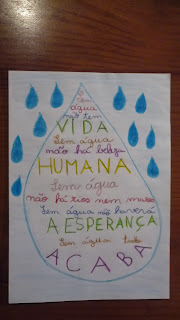 Sem
água
não tem
VIDA
Sem água
não há beleza
HUMANA
Sem água
não há rios nem mares
Sem água não haverá
A ESPERANÇA
Sem água tudo
ACABA